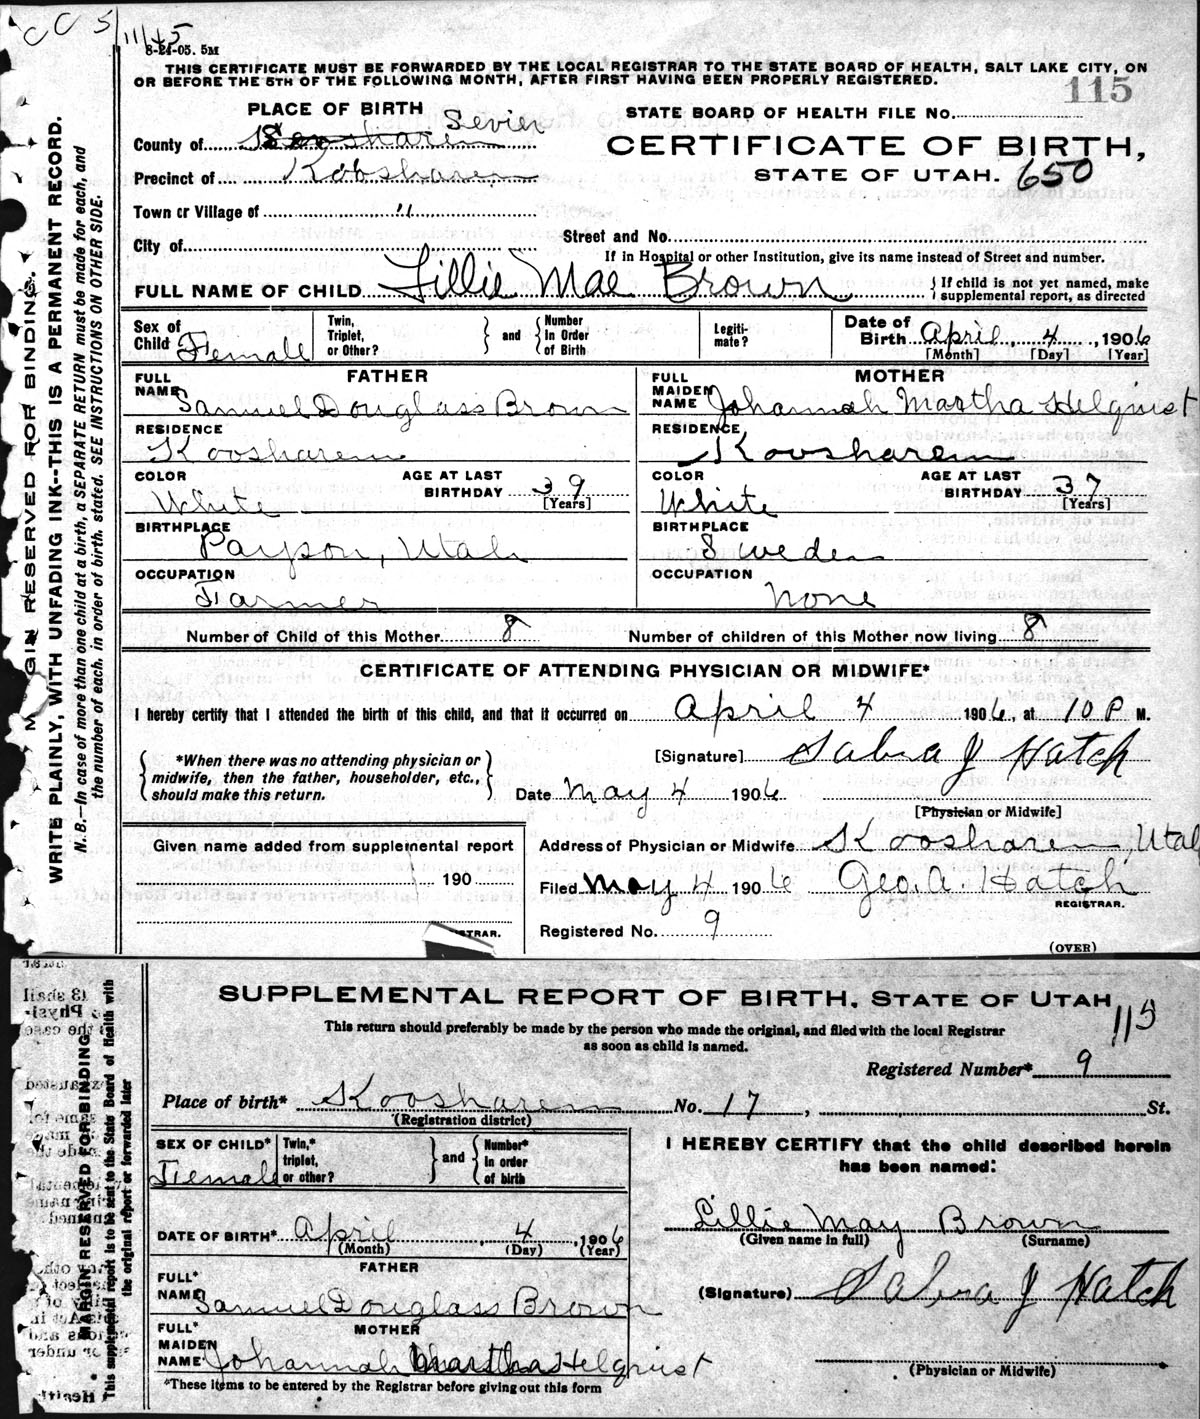 CC 5 11/45
8-21-05. 5M
THIS CERTIFICATE MUST BE FORWARDED BY THE LOCAL REGISTRAR TO THE STATE BOARD OF HEALTH, SALT LAKE CITY, ON
OR BEFORE THE 5TH OF THE FOLLOWING MONTH, AFTER FIRST HAVING BEEN PROPERLY REGISTERED.
115
PLACE OF BIRTH
STATE BOARD OF HEALTH FILE No.
County of Koosharem Sevier
CERTIFICATE OF BIRTH,
Precinct of Koosharem
STATE OF UTAH. 650
Town or Village of "
City of
Street and No.
If in Hospital or other Institution, give its name instead of Street and number.
FULL NAME OF CHILD Lillie Mae Brown { If child is not yet named, make supplemental report, as directed
Sex of Child Female Twin, Triplet, or Other? } and { Number In Order of Birth Legiti-mate? Date of Birth April 4, 1906
[Month] [Day] [Year]
FATHER
FULL NAME Samuel Douglass Brown
RESIDENCE Koosharem
COLOR White AGE AT LAST BIRTHDAY 39 [Years]
BIRTHPLACE Payson, Utah
OCCUPATION Farmer
MOTHER
FULL MAIDEN NAME Johannah Martha Helquist
RESIDENCE Koosharem
COLOR White AGE AT LAST BIRTHDAY 37 [Years]
BIRTHPLACE Sweden
OCCUPATION None
Number of Child of this Mother 8 Number of children of this Mother now living 8
CERTIFICATE OF ATTENDING PHYSICIAN OR MIDWIFE*
I hereby certify that I attended the birth of this child, and that it occurred on April 4 1906, at 10 P M.
{ *When there was no attending physician or midwife, then the father, householder, etc., should make this return. }
[Signature] Sabra J Hatch
Date May 4 1906
[Physician or Midwife]
Given name added from supplemental report
190
STRAR.
Address of Physician or Midwife Koosharem, Utah
Filed May 4 1906 Geo. A. Hatch
REGISTRAR.
Registered No. 9
(OVER)
M GIN RESERVED FOR BINDING.
WRITE PLAINLY, WITH UNFADING INK--THIS IS A PERMANENT RECORD.
N. B.—In case of more than one child at a birth, a SEPARATE RETURN must be made for each, and
the number of each, in order of birth, stated. SEE INSTRUCTIONS ON OTHER SIDE.
SUPPLEMENTAL REPORT OF BIRTH. STATE OF UTAH
115
This return should preferably be made by the person who made the original, and filed with the local Registrar
as soon as child is named.
Registered Number* 9
Place of birth* Koosharem No. 17, St.
(Registration district)
SEX OF CHILD* Female Twin,* triplet, or other? } and { Number* In order of birth
DATE OF BIRTH* April 4, 1906
(Month) (Day) (Year)
FATHER
FULL* NAME Samuel Douglass Brown
MOTHER
FULL* MAIDEN NAME* Johannah Martha Helquist
*These items to be entered by the Registrar before giving out this form
I HEREBY CERTIFY that the child described herein
has been named:
Lillie May Brown
(Given name in full) (Surname)
(Signature) Sabra J Hatch
(Physician or Midwife)
MARGIN RESERVED FOR BINDING.
This supplemental report is to be sent to the State Board of Health with
the original report or forwarded later